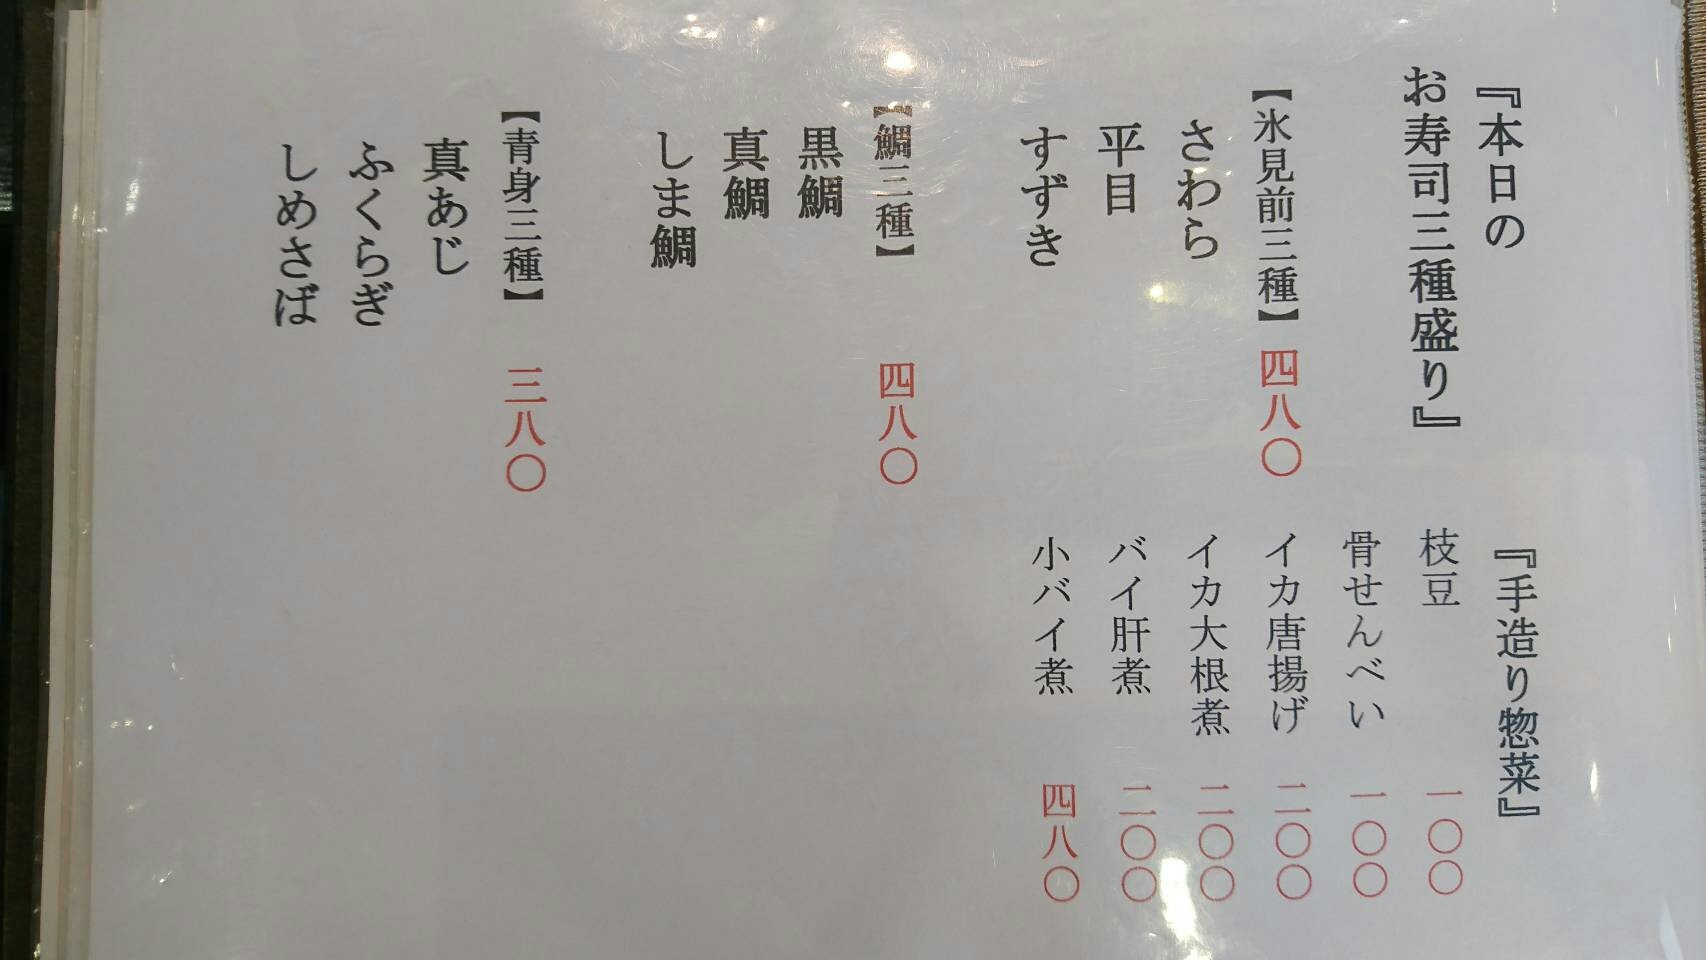 『本日の
お寿司三種盛り』
【氷見前三種】 四八〇
さわら
平目
すずき
【鯛三種】 四八〇
黒鯛
真鯛
しま鯛
【青身三種】 三八〇
真あじ
ふくらぎ
しめさば
『手造り惣菜』
枝豆 一〇〇
骨せんべい 一〇〇
イカ唐揚げ 二〇〇
イカ大根煮 二〇〇
バイ肝煮 二〇〇
小バイ煮 四八〇